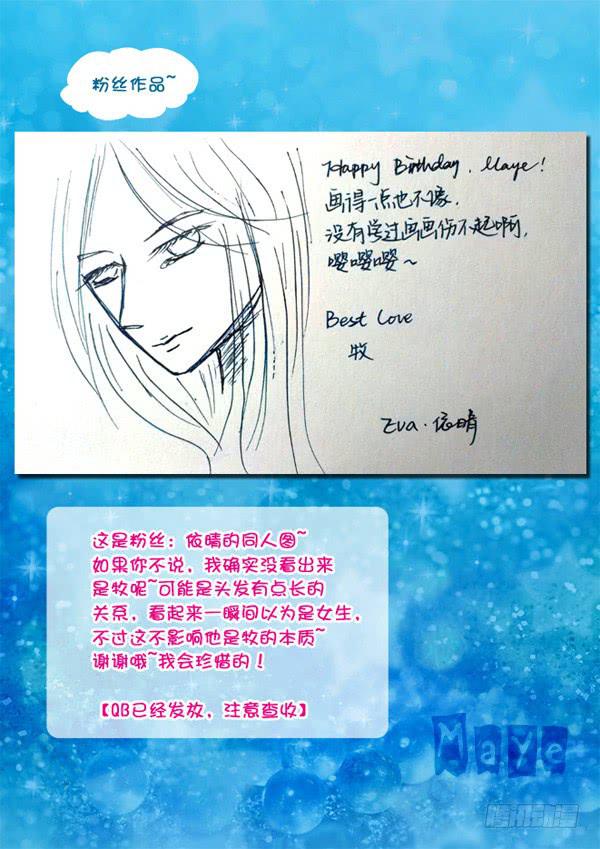 粉丝作品~
Happy Birthday, Maye!
画得一点也不像,
没有学过画画伤不起啊,
嘤嘤嘤~
Best Love
牧
Eva·依晴
这是粉丝：依晴的同人图~
如果你不说，我确实没看出来
是牧呢~可能是头发有点长的
关系，看起来一瞬间以为是女生，
不过这不影响他是牧的本质~
谢谢哦~我会珍惜的！
【QB已经发放，注意查收】
Maye
腾讯动漫